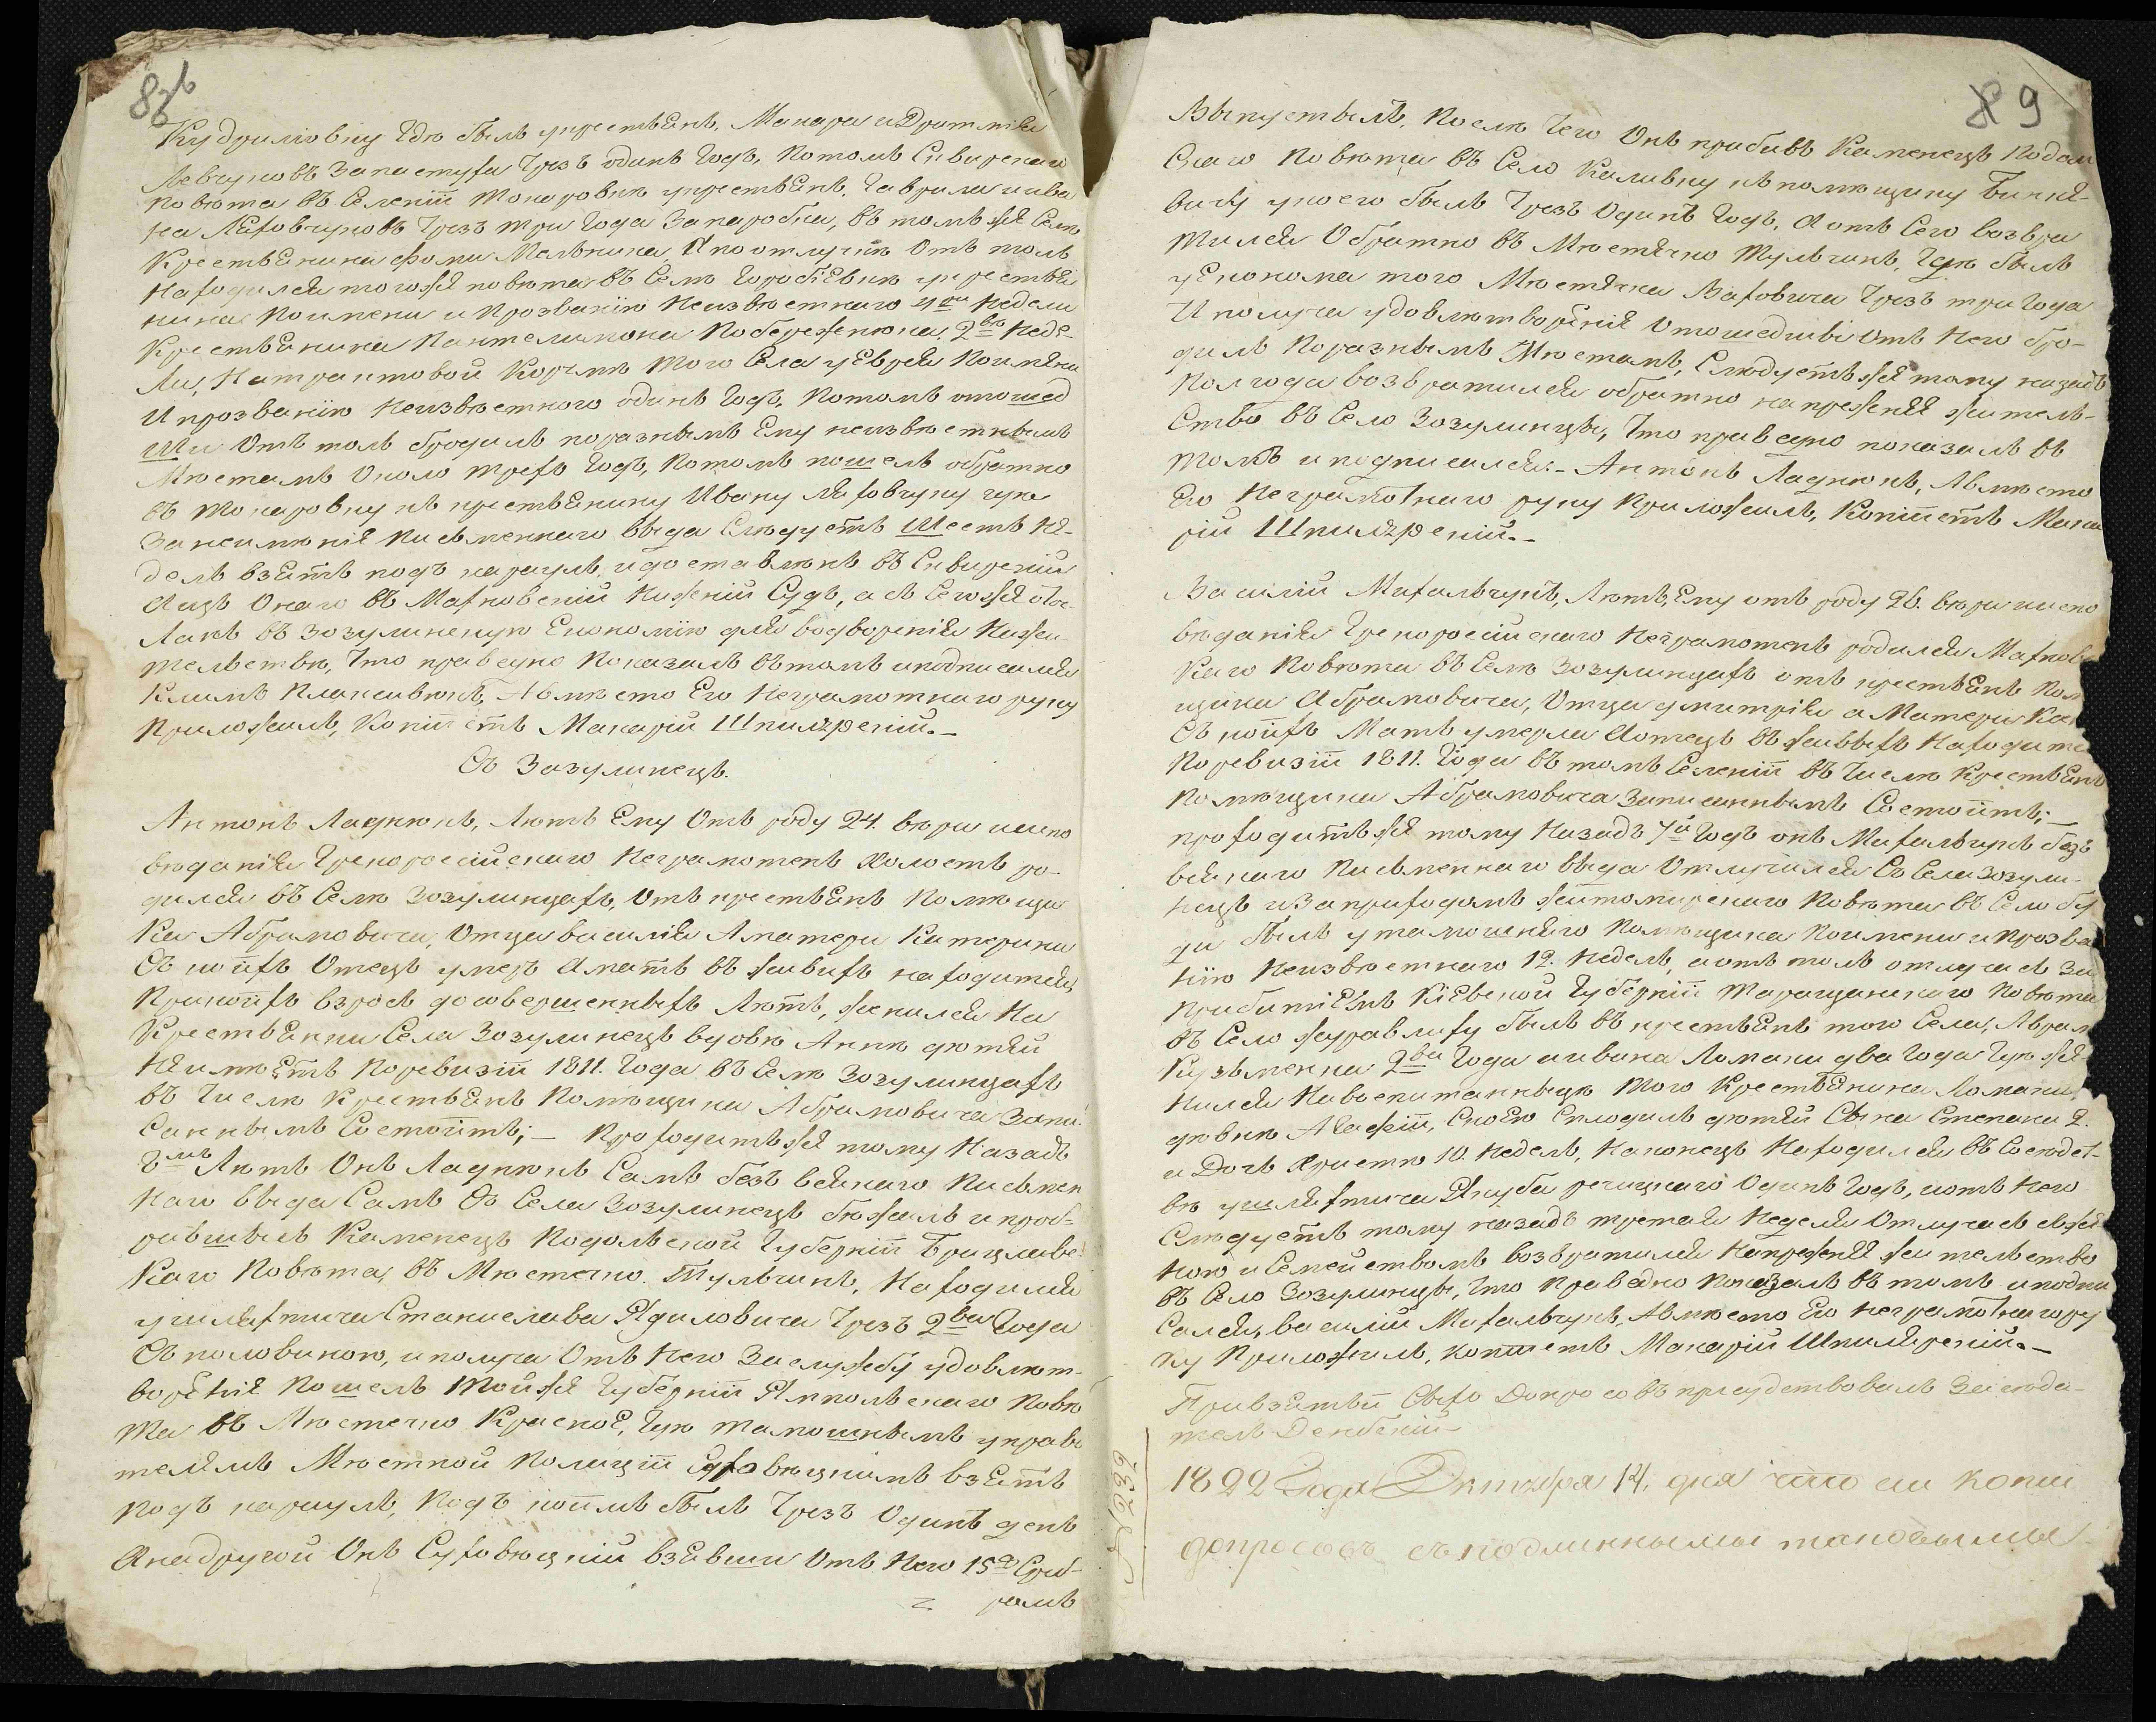 Кудриловку где былъ укрестьянъ, Макара и Дмитрія
Левчуковъ Запастуха Чрезъ одинъ Годъ, Потомъ Сквирскаго
Повѣта въ Селеніи Токаровкѣ укрестьянъ, Гаврила и ива
на Ляховчуковъ Чрезъ три Года За паробка, въ томъ же Селѣ
Крестьянина Фомы Мельника, А по отлучкѣ Отъ толь
Находился тогоже повѣта въ Селѣ Горобіевкѣ укрестьяни
нина Поимени и прозванію Неизвѣстнаго 4ри Недели
Крестьянина Пантелимона Побережнюка 2вѣ Неде-
Ли, Натрактовой Корчмѣ Того Села уЕврея Поимени
И прозванію Неизвѣстного одинъ Годъ, Потомъ отошед
Ши Отъ толь бродилъ по разнымъ Ему неизвѣстнымъ
Мѣстамъ Около трехъ Годъ, Потомъ пошелъ обратно
въ Токаровку къ крестьянину Ивану Ляховчуку гдѣ
Занеимѣніе Письменнаго вида Слѣдуетъ Шесть Не-
дель взятъ подъ караулъ, и доставленъ въ Сквирскій
Аизъ Онаго въ Махновскій Нижній Судъ, а съ Сегоже ото-
Ланъ въ Зозулинскую Економію для водворенія Нажи-
тельствѣ, Что праведно Показалъ въ томъ и подписался
Климъ Плаксивюкъ, А вмѣсто Его Неграмотнаго руку
Приложилъ, Копіистъ Макарій Шпилярскій.–
Съ Зазулинецъ.
Антонъ Ладнюкъ, Лѣтъ Ему Отъ роду 24. вѣри испо
вѣданія Грекороссійскаго Неграмотенъ Холостъ ро-
дился въ Селѣ Зозулинцахъ, Отъ крестьянъ Помѣщи
Ка Абрамовича, Отца василія Аматери Катерини
Съ коихъ Отецъ умеръ Аматъ въ живихъ находится,
Прикоихъ взросъ до совершенныхъ Лѣтъ, женился На
Крестьянки Села Зозулинецъ вдовѣ Аннѣ дѣтей
Неимѣетъ Поревизіи 1811. Года въ Селѣ Зозулинцахъ
въ Числѣ Крестьянъ Помѣщика Абрамовича Запи-
Саннымъ Состоитъ; – Проходитъже тому Назадъ
8мь Лѣтъ Онъ Ладнюкъ Самъ безъ всякаго Письмен
Наго вида Самъ Съ Села Зозулинецъ бѣжалъ и проб-
равшись Каменецъ Подольской Губерніи Брацлавс
Каго Повѣта, въ Мѣстечко Тульчинъ, Находился
ушляхтича Станислава Ядиловича Чрезъ 2ва Года
Съ половиною, и получа Отъ Него За службу удовлет-
вореніе Пошелъ Тойже Губерніи Ямпольскаго Повѣ
Та въ Мѣстечко Красное, Гдѣ тамошнымъ управи
телемъ Мѣстной Полиціи Суховѣцкимъ взятъ
подъ караулъ, Подъ коимъ былъ Чрезъ Одинъ день
Анадругой Онъ Суховѣцкій взявши Отъ Него 15ть Среб-
ромъ
89
Выпустилъ, Послѣ Чего Онъ прибивъ Каменецъ Подоль
Скаго Повѣта въ Село Каливку къ помѣщику
вичу укоего былъ Чрезъ Одинъ Годъ, А отъ Сего возвра
тился Обратно въ Мѣстечко Тульчинъ, Гдѣ былъ
уЕконома того МѣстечкаВаховича Чрезъ три Года
И получа удовлетвореніе Отошедшиї Отъ Него бро-
дилъ Поразнымъ Мѣстамъ, Слѣдуетъже тому назадъ
Полгода возвратился обратно на прежнее житель-
Ство въ Село Зозулинцы, Что праведно показалъ въ
томъ и подписался.– Антонъ Ладнюкъ, Авмѣсто
Его Неграмотнаго руку Приложилъ, Копіистъ Мака
рій Шпилярскій.–
Василій Михальчукъ, Лѣтъ, Ему отъ роду 26. вѣри испо
вѣданія Грекороссійскаго Неграмотенъ родился Махновс
Каго Повѣта въ Селѣ Зозулинцахъ отъ крестьянъ Помѣ
щика Абрамовича, Отца дмитрія а Матери
Съ коихъ Мать умерла Аотецъ въ живыхъ Находится
Поревизіи 1811. Года въ томъ Селеніи въ Числѣ Крестьянъ
Помѣщика Абрамовича Записаннымъ Состоитъ;–
проходитъже тому Назадъ 7й Годъ онъ Михальчукъ безъ
всякаго Письменнаго вида Отлучился Съ Села Зозули-
нецъ иЗаприходомъ житомирскаго Повѣта въ Село бу
ди былъ утамошняго Помѣщика Поимени и прозва
нію Неизвѣстнаго 12. Недель, и отъ толь отлучась За
Прибитіемъ Кіевской Губерніи Таращанскаго Повѣта
въ Село Журавлиху былъ въ крестьянъ того Села, Аврам
Кузьменка 2ва Года и ивана Ломаки два Года Гдѣже
нился Навоспитанныцѣ Того Крестьянина Ломаки,
дѣвкѣ Агафіи, Сною Сплодилъ дѣтей Сына Степана 2.
и Дочь Христю 10. Недель, Наконецъ Находился въ Сосѣдст
вѣ ушляхтича Якуба речицкаго Одинъ Годъ, и отъ Него
Слѣдуетъ тому назадъ третая Неделя Отлучась съже
ною и Семействомъ возвратился Напрежнее жительство
въ Село Зозулинцы, Что Праведно Показалъ въ томъ и подпи
Сался, василій Михальчукъ, Авмѣсто Его неграмотнаго ру
ку Приложилъ, копіистъ Макарій Шпилярскій.–
Привзятьи Сихъ Допросовъ присудствовалъ Засѣда-
тель Дембскій
1822 Года Октября 14. дня что сіи копіи
допросовъ съ подлинными таковыми
№ 1232